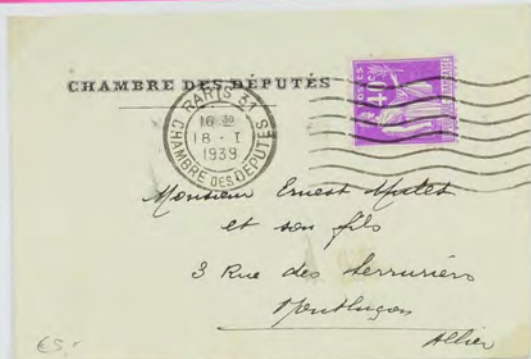 CHAMBRE DES DÉPUTÉS
PARIS 31
16 30
18 - I
1939
CHAMBRE DES DEPUTÉS
POSTES
40c
Monsieur Ernest
et son fils
3 Rue des Serruriers
Montluçon
Allier
€5,-